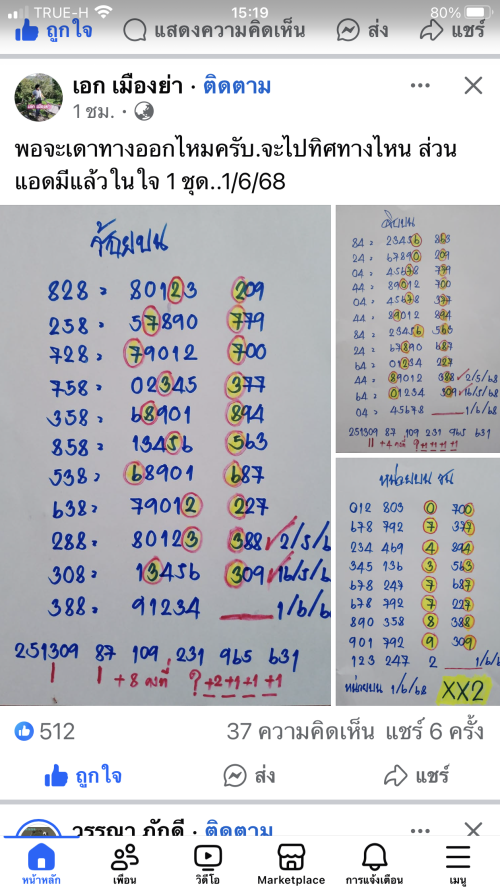 TRUE-H 15:19 80%
ถูกใจ แสดงความคิดเห็น ส่ง แชร์
เอก เมืองย่า · ติดตาม
1 ชม. ·
พอจะเดาทางออกไหมครับ.จะไปทิศทางไหน ส่วน
แอดมีแล้วในใจ 1 ชุด..1/6/68
828= 80123 209
258= 57890 779
728= 79012 700
758= 02345 377
358= 68901 894
858= 13456 563
538= 68901 687
638= 79012 227
288= 80123 388 ✓ 2/5/6
308= 13456 309 ✓ 16/5/6
388= 91234 ___ 1/6/6
251309 87 109 231 965 631
1 1 +8 คงที่ ? +2+1+1+1
84= 23456 863
24= 67890 209
04= 45678 779
44= 89012 700
04= 45678 377
44= 89012 894
84= 23456 563
24= 67890 687
64= 01234 227
44= 89012 388 ✓ 2/5/68
64= 01234 309 ✓ 16/5/68
04= 45678 ___ 1/6/68
251309 87 109 231 965 631
11 +4 คงที่ ? +1+1+1+1
หน่วยบน ชน
012 803 0 700
678 792 7 377
234 469 4 894
345 136 3 563
678 247 7 687
678 792 7 227
890 358 8 388
901 792 9 309
123 247 2 ___ 1/6/6
หน่วยบน 1/6/68 XX2
512 37 ความคิดเห็น แชร์ 6 ครั้ง
ถูกใจ ส่ง แชร์
วรรณา ภักดี · ติดตาม
หน้าหลัก เพื่อน วิดีโอ Marketplace การแจ้งเตือน เมนู